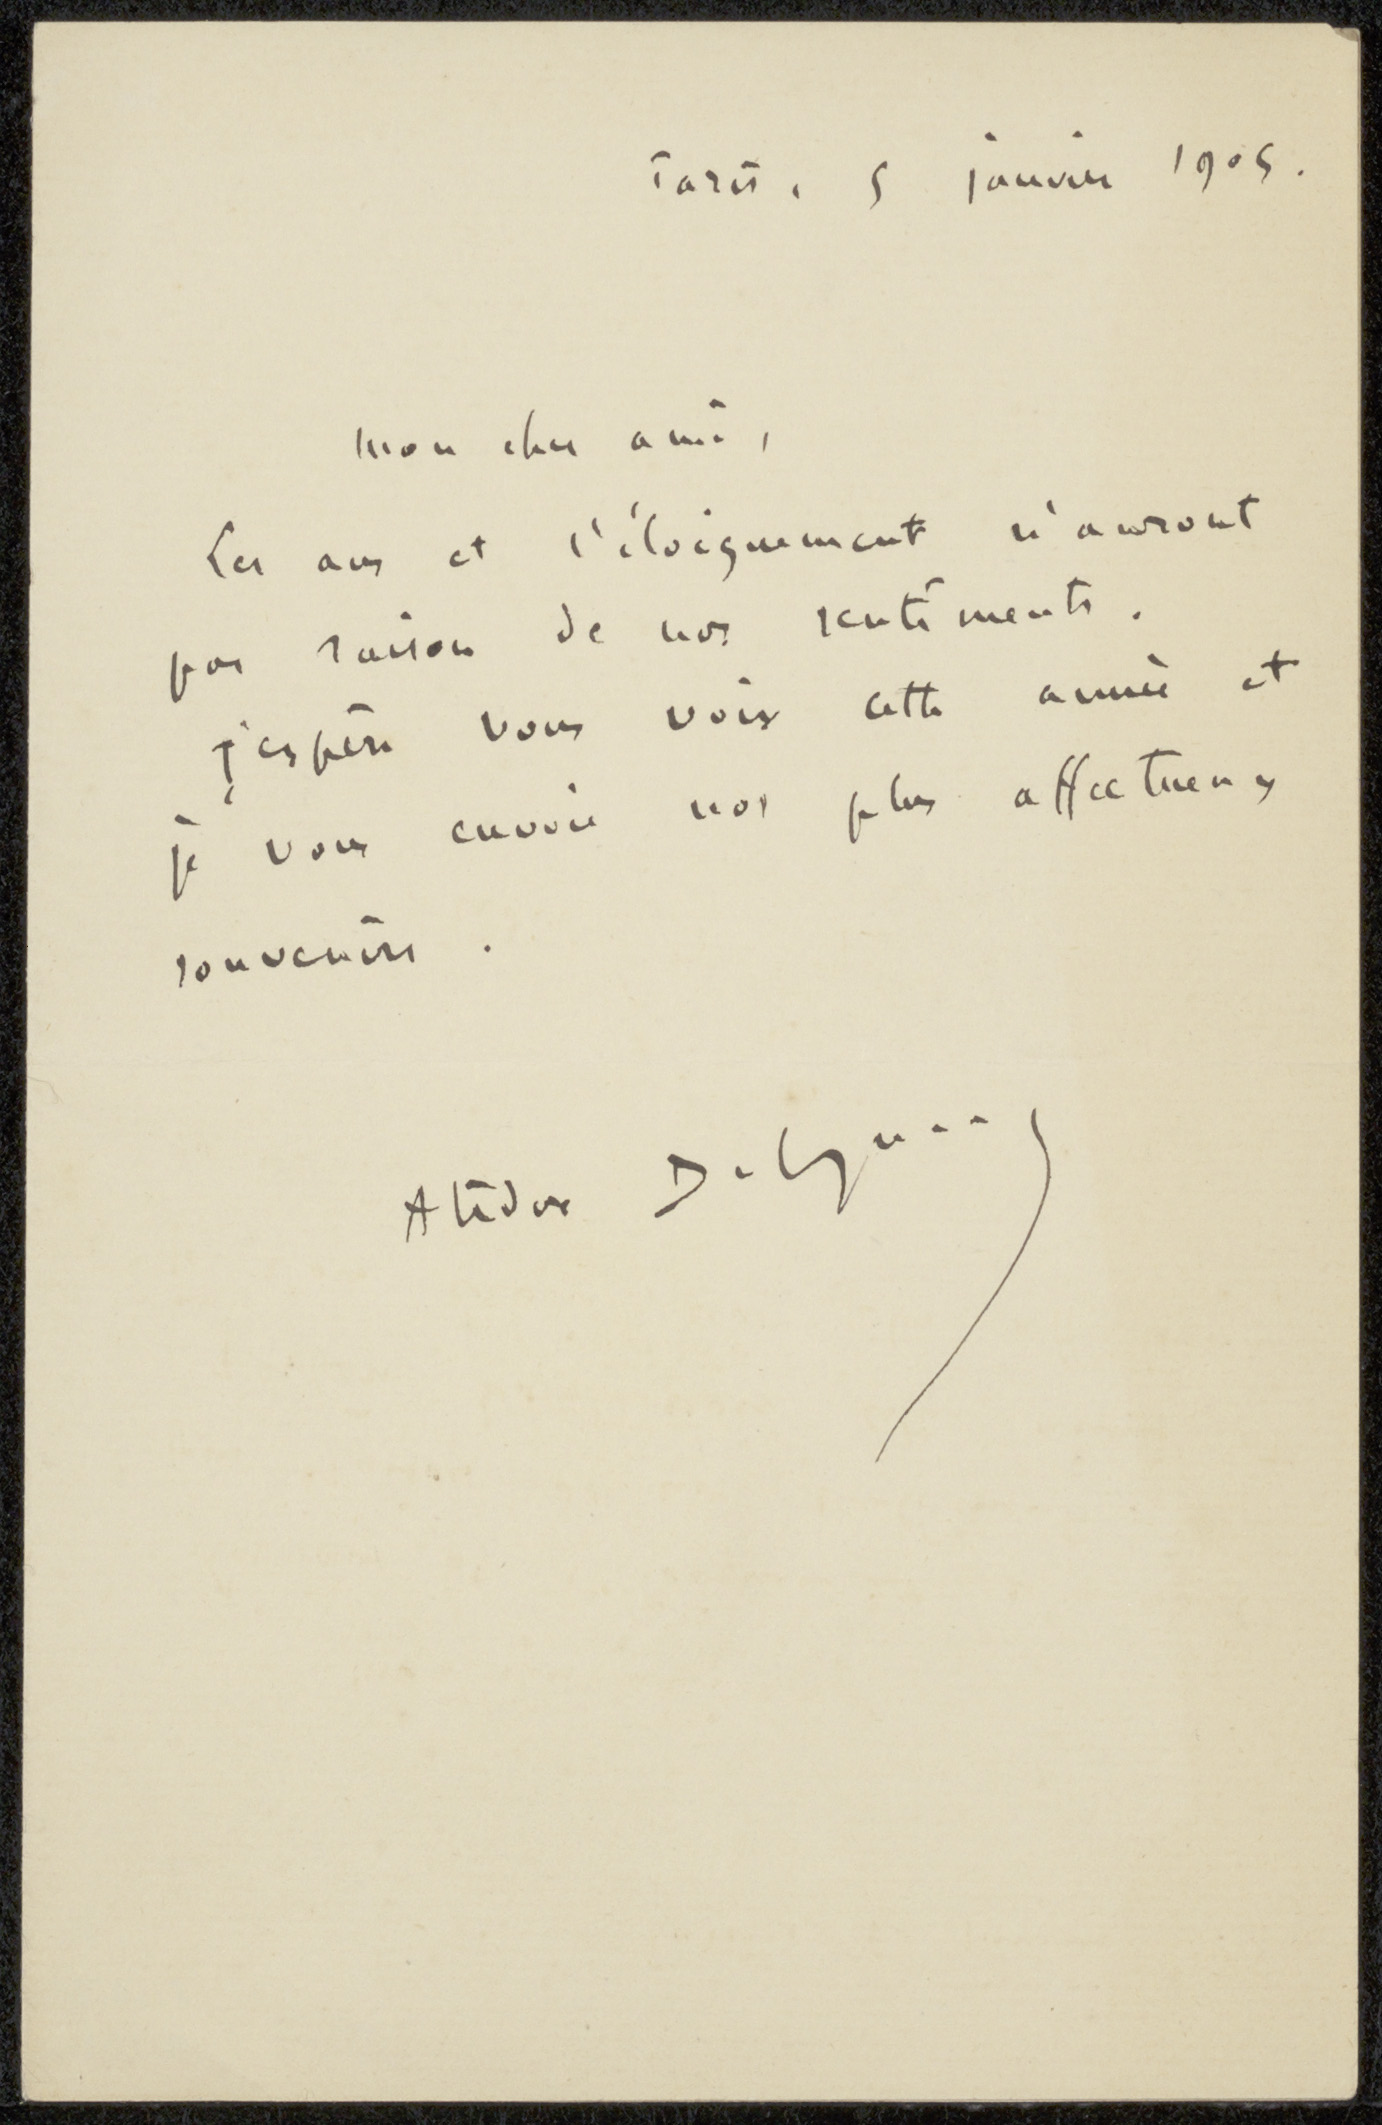 Paris, 5 janvier 1905.
Mon cher ami,
Les ans et l'éloignement n'auront
pas raison de nos sentiments.
J'espère vous voir cette année et
je vous envoie nos plus affectueux
souvenirs.